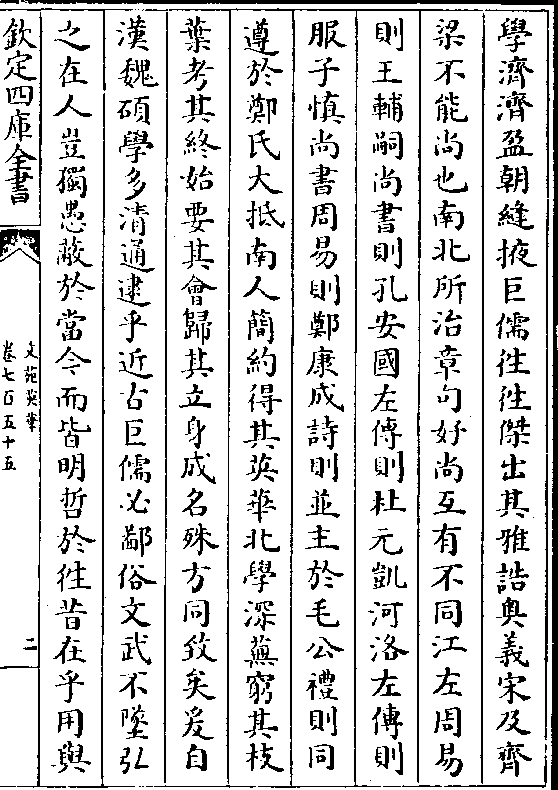 學濟濟盈朝縫掖巨儒徃徃傑出其雅誥奥義宋及齊
梁不能尚也南北所治章句好尚互有不同江左周易
則王輔嗣尚書則孔安國左傳則杜元凱河洛左傳則
服子慎尚書周易則鄭康成詩則並主於毛公禮則同
遵於鄭氏大抵南人簡約得其英華北學深蕪窮其枝
葉考其終始要其會歸其立身成名殊方同致矣爰自
漢魏碩學多清通逮乎近古巨儒必鄙俗文武不墜弘
之在人豈獨愚蔽於當今而皆明哲於徃昔在乎用與
欽定四庫全書
文苑英華
卷七百五十五
二